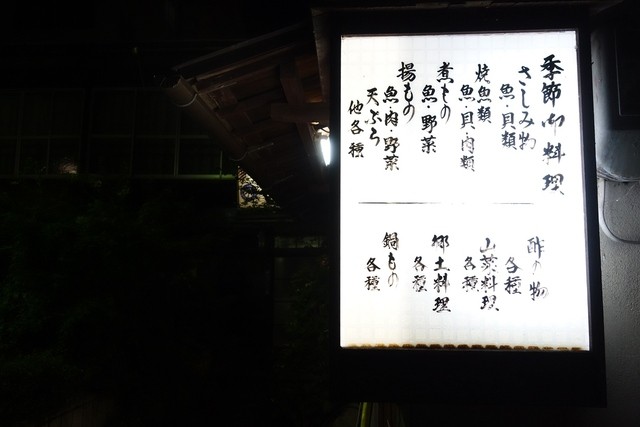 季節御料理
さしみ物
魚・貝類
焼魚類
魚・貝・肉類
煮もの
魚・野菜
揚もの
魚・肉・野菜
天ぷら
他各種
酢の物
各種
山菜料理
各種
郷土料理
各種
鍋もの
各種